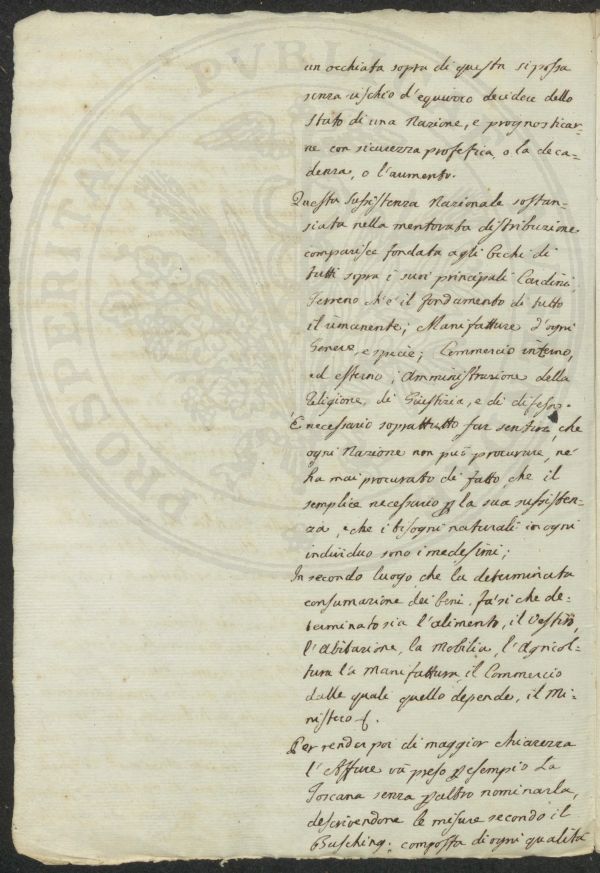 un occhiata sopra di questa si possa
senza rischio d'equivoco decidere dello
Stato di una Nazione, e prognosticar=
ne con sicurezza profetica, o la deca=
denza, o l'aumento.
Questa Sussistenza Nazionale sostan=
ziata nella mentovata distribuzione
comparisce fondata agli occhi di
tutti sopra i suoi principali Cardini
Terreno ch'è il fondamento di tutto
il rimanente; Manifatture d'ogni
Genere, e specie; Commercio interno,
ed esterno; Amministrazione della
Religione, di Giustizia, e di difesa.
È necessario soprattutto far sentire, che
ogni Nazione non può procurare, nè
ha mai procurato di fatto, che il
semplice necessario p la sua sussisten=
za, e che i bisogni naturali in ogni
individuo sono i medesimi;
In secondo luogo, che la determinata
consumazione dei beni, fa sì che de=
terminato sia l'alimento, il Vestito,
l'Abitazione, la Mobilia, l'Agricol=
tura la Manifattura, il Commercio
dalle quali quello depende, il Mi=
nistero
Per render poi di maggior chiarezza
l'Affare và preso p esempio La
Toscana senza p altro nominarla,
descrivendone le misure secondo il
Busching; composta di ogni qualità
PVBLI
PROSPERITATI